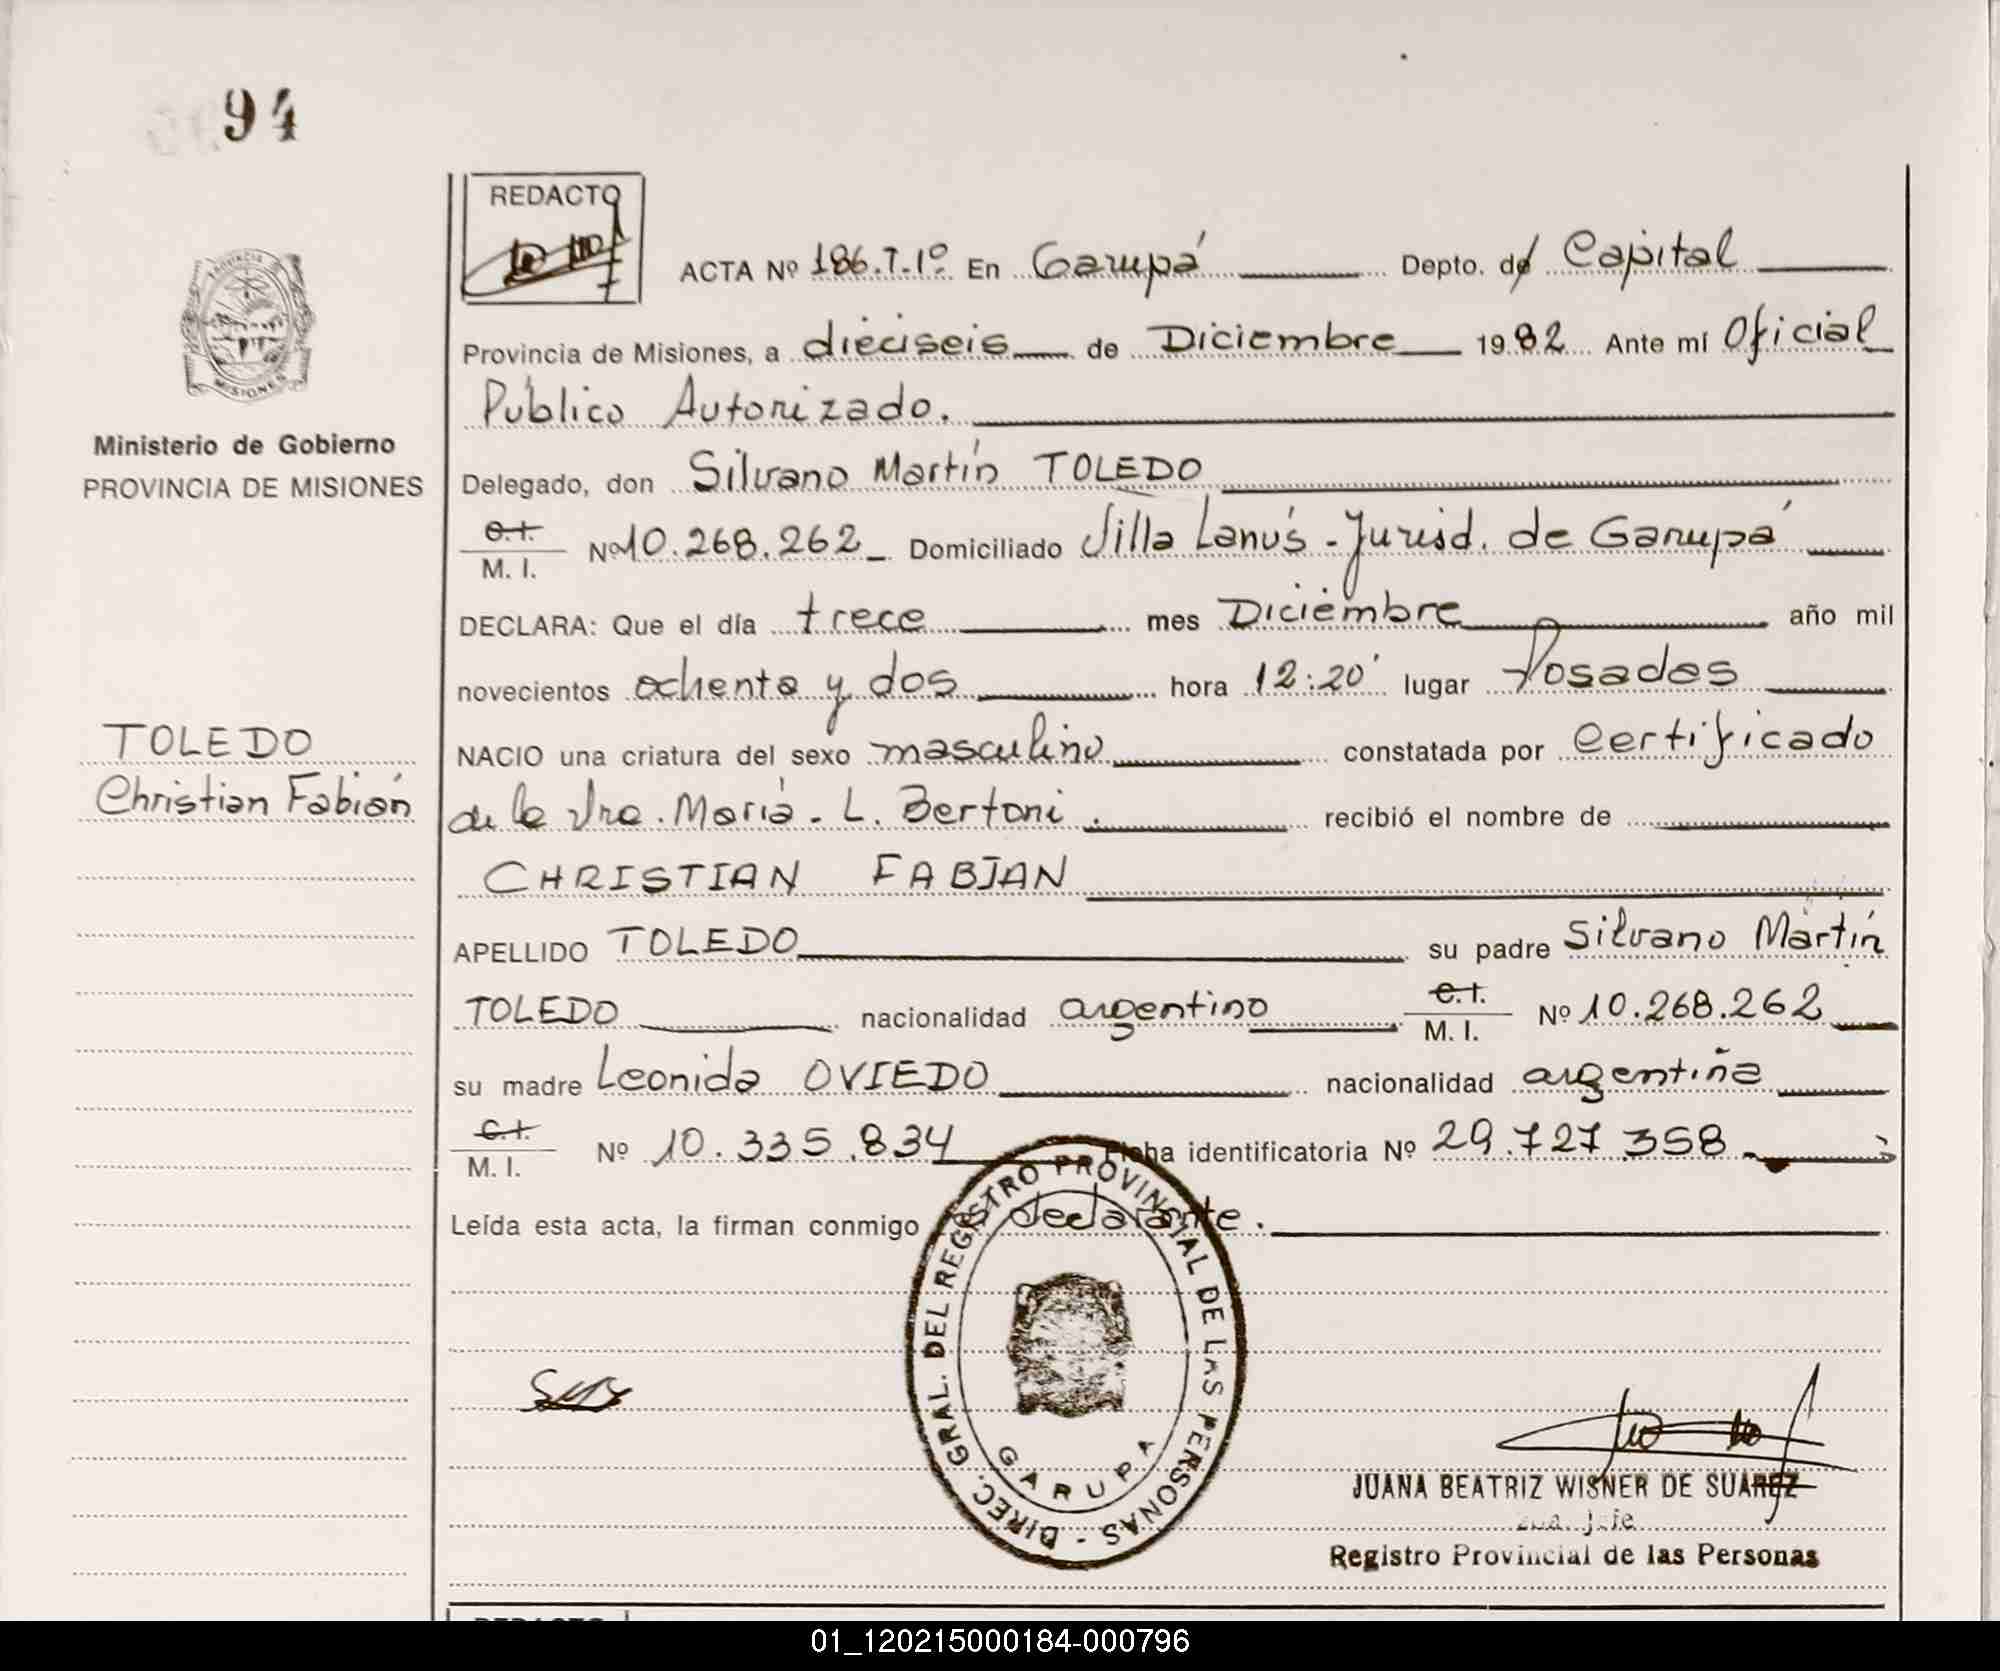 94
REDACTO
ACTA Nº 186.T.1º En Garupá Depto. de Capital
PROVINCIA
MISIONES
Provincia de Misiones, a dieciseis de Diciembre 1982 Ante mí Oficial
Público Autorizado.
Ministerio de Gobierno
PROVINCIA DE MISIONES
Delegado, don Silvano Martín TOLEDO
C.I.
M. I. Nº 10.268.262 Domiciliado Villa Lanús - Jurisd. de Garupá
DECLARA: Que el día trece mes Diciembre año mil
novecientos ochenta y dos hora 12:20' lugar Posadas
TOLEDO
Christian Fabián
NACIO una criatura del sexo masculino constatada por Certificado
de la Dra. María - L. Bertoni. recibió el nombre de
CHRISTIAN FABIAN
APELLIDO TOLEDO su padre Silvano Martín
TOLEDO nacionalidad argentino C.I. M. I. Nº 10.268.262
su madre Leonida OVIEDO nacionalidad argentina
C.I.
M. I. Nº 10.335.834 Ficha identificatoria Nº 29.727.358
Leída esta acta, la firman conmigo declarante.
DIREC. GRAL. DEL REGISTRO PROVINCIAL DE LAS PERSONAS -
GARUPA
JUANA BEATRIZ WISNER DE SUAREZ
Jefe
Registro Provincial de las Personas
REDACTO
01_120215000184-000796